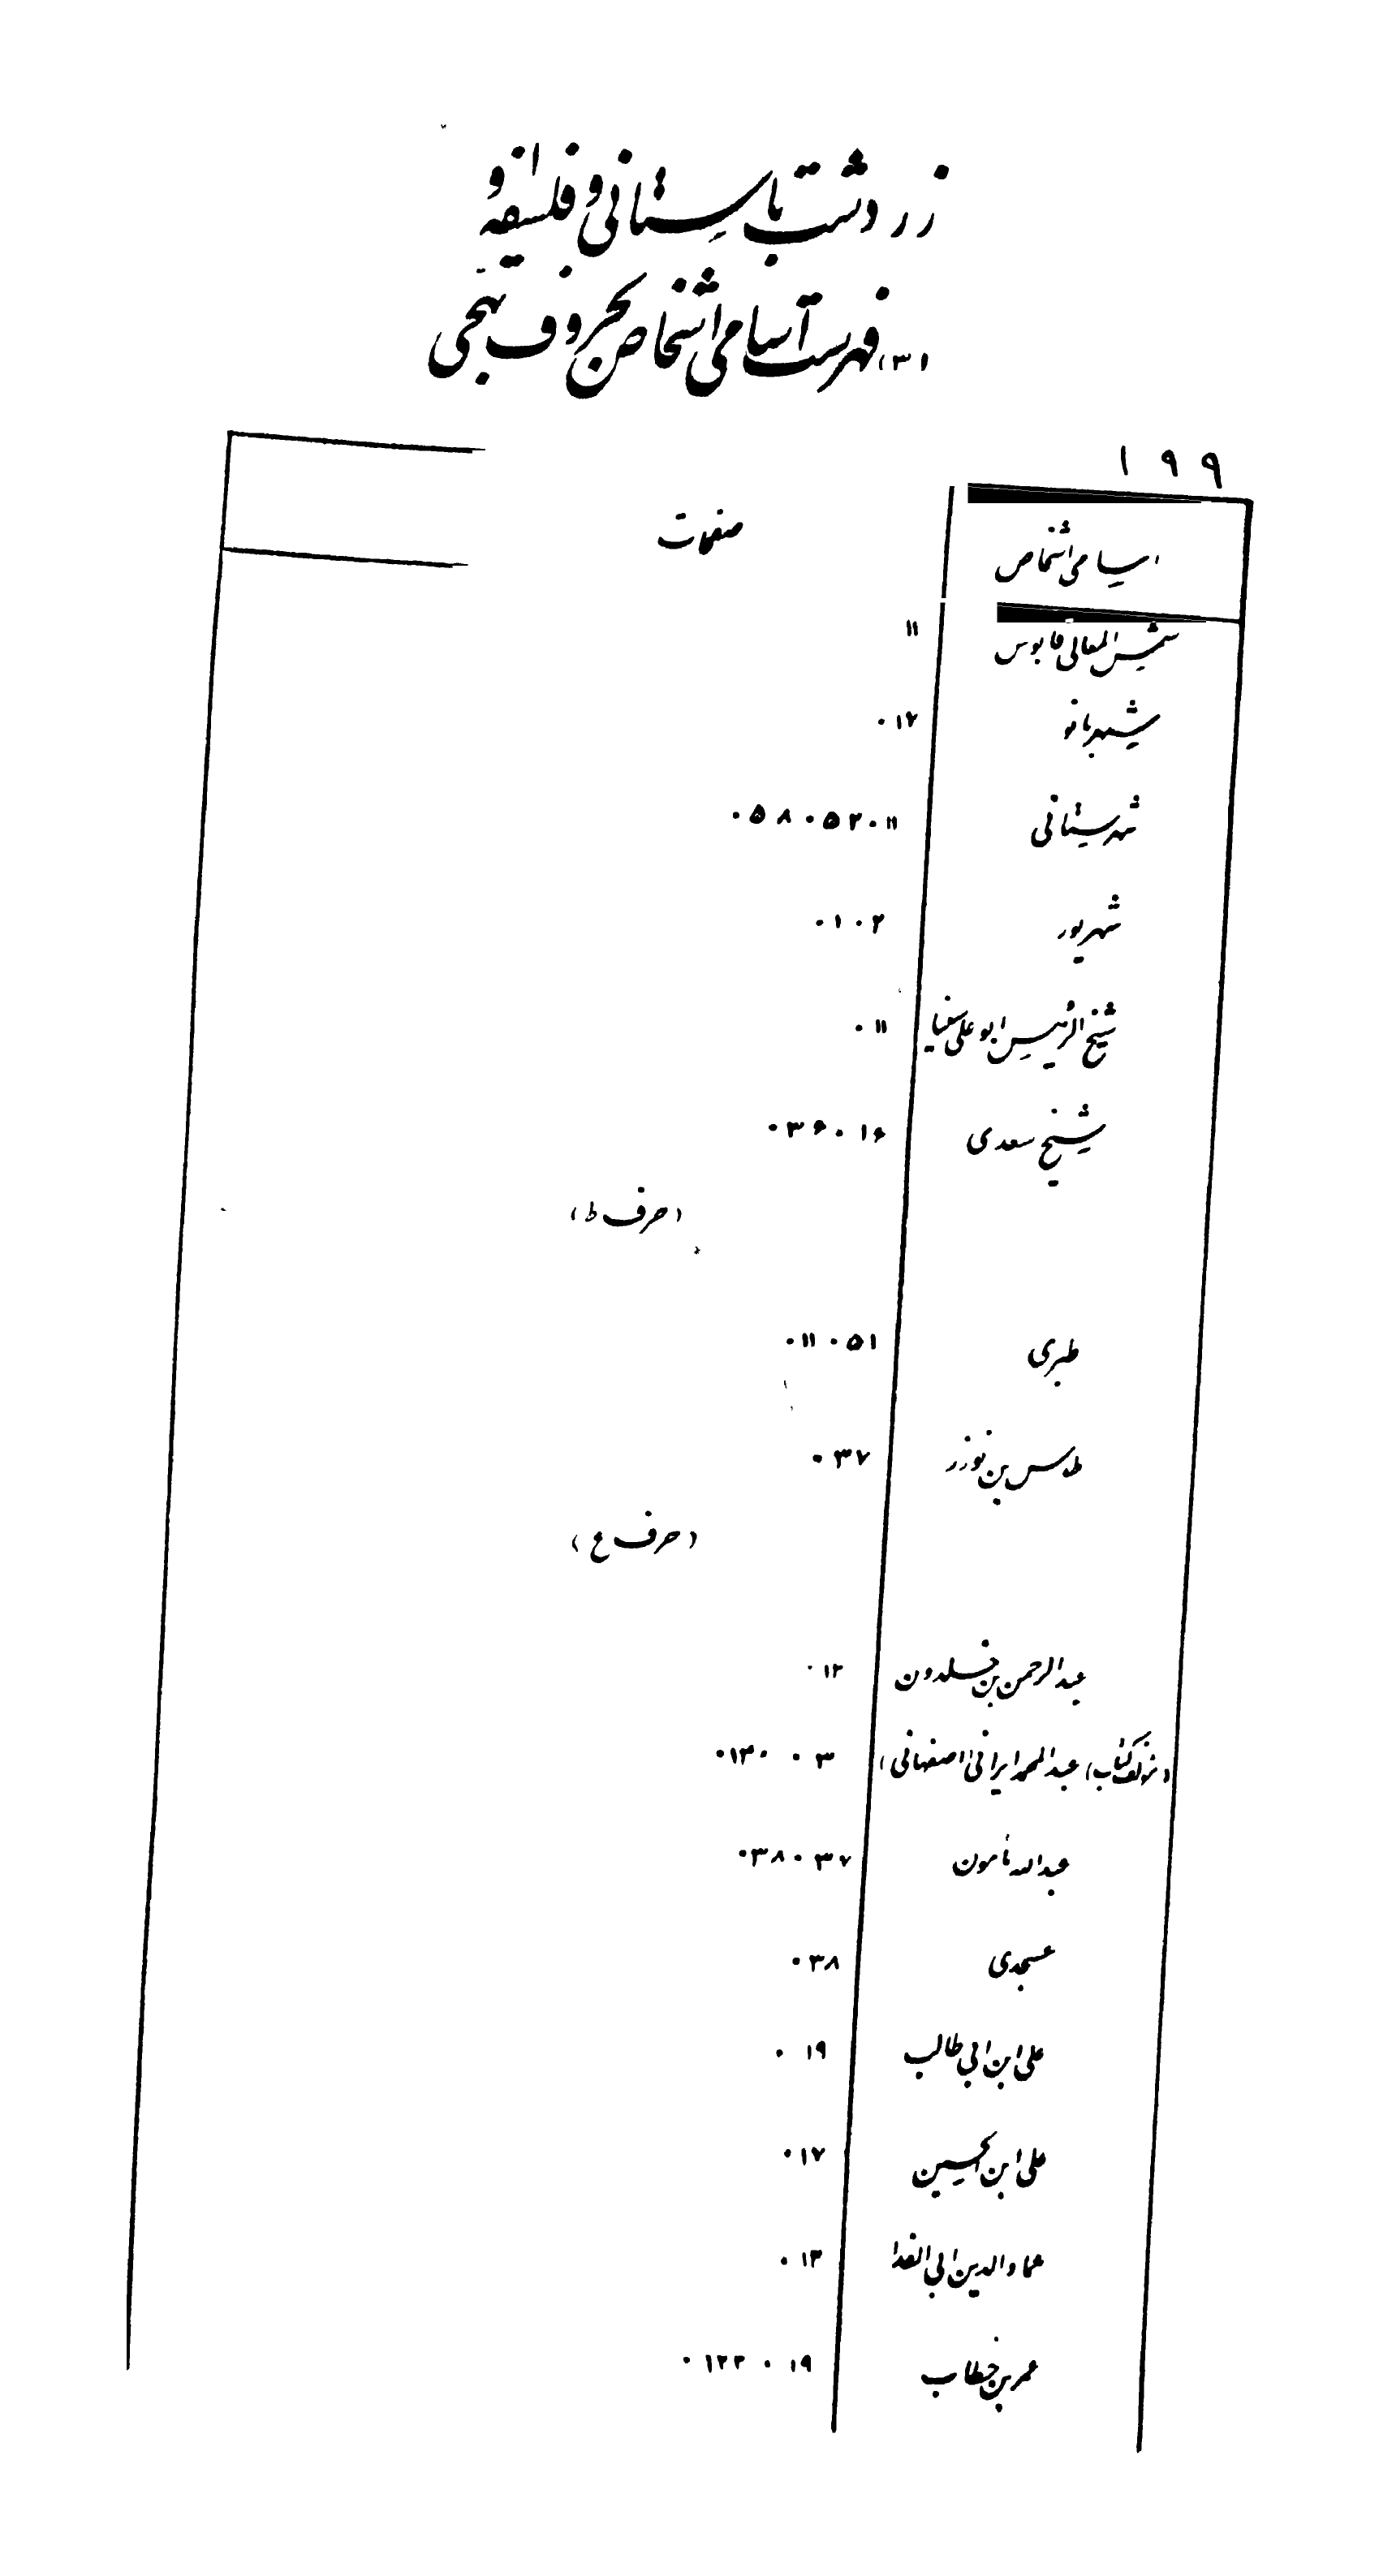 زردشت باستانی و فلسفه او
(۳) فهرست اسامی اشخاص بحروف تهجی
۱۹۹
اسامی اشخاص صفحات
شمس المعالی قابوس ۱۱
شهربانو ۱۲۰
شهرستانی ۱۱۰ ۵۲۰ ۵۸۰
شهریور ۱۰۲۰
شیخ الرئیس ابوعلی سینا ۱۱۰
شیخ سعدی ۱۶۰ ۳۶۰
(حرف ط)
طبری ۵۱۰ ۱۱۰
طوس بن نوذر ۳۷۰
(حرف ع)
عبدالرحمن بن خلدون ۱۲۰
(مؤلف کتاب) عبدالمحمد ایرانی (اصفهانی) ۳۰ ۱۳۰۰
عبدالله مأمون ۳۷۰ ۳۸۰
عسجدی ۳۸۰
علی ابن ابی طالب ۱۹۰
علی ابن الحسین ۱۷۰
عماد الدین ابی الفدا ۱۳۰
عمر بن خطاب ۱۹۰ ۱۲۲۰